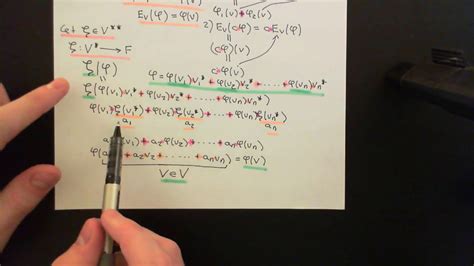 Eᵥ(φ) = φ(v)
φ₁(v) + φ₂(v)
2) Eᵥ(cφ) = cEᵥ(φ)
(cφ)(v)
c·φ(v)
Let ξ ∈ V**
ξ: V* → F
ξ(φ)
φ = φ(v₁)v₁* + φ(v₂)v₂* + ······ + φ(vₙ)vₙ*
ξ(φ(v₁)v₁* + φ(v₂)v₂* + ······ + φ(vₙ)vₙ*)
φ(v₁)ξ(v₁*) + φ(v₂)ξ(v₂*) + ······ + φ(vₙ)ξ(vₙ*)
a₁ a₂ aₙ
(v₁) + a₂φ(v₂) + ······ + aₙφ(vₙ)
φ(a + a₂v₂ + ······ + aₙvₙ) = φ(v)
v ∈ V